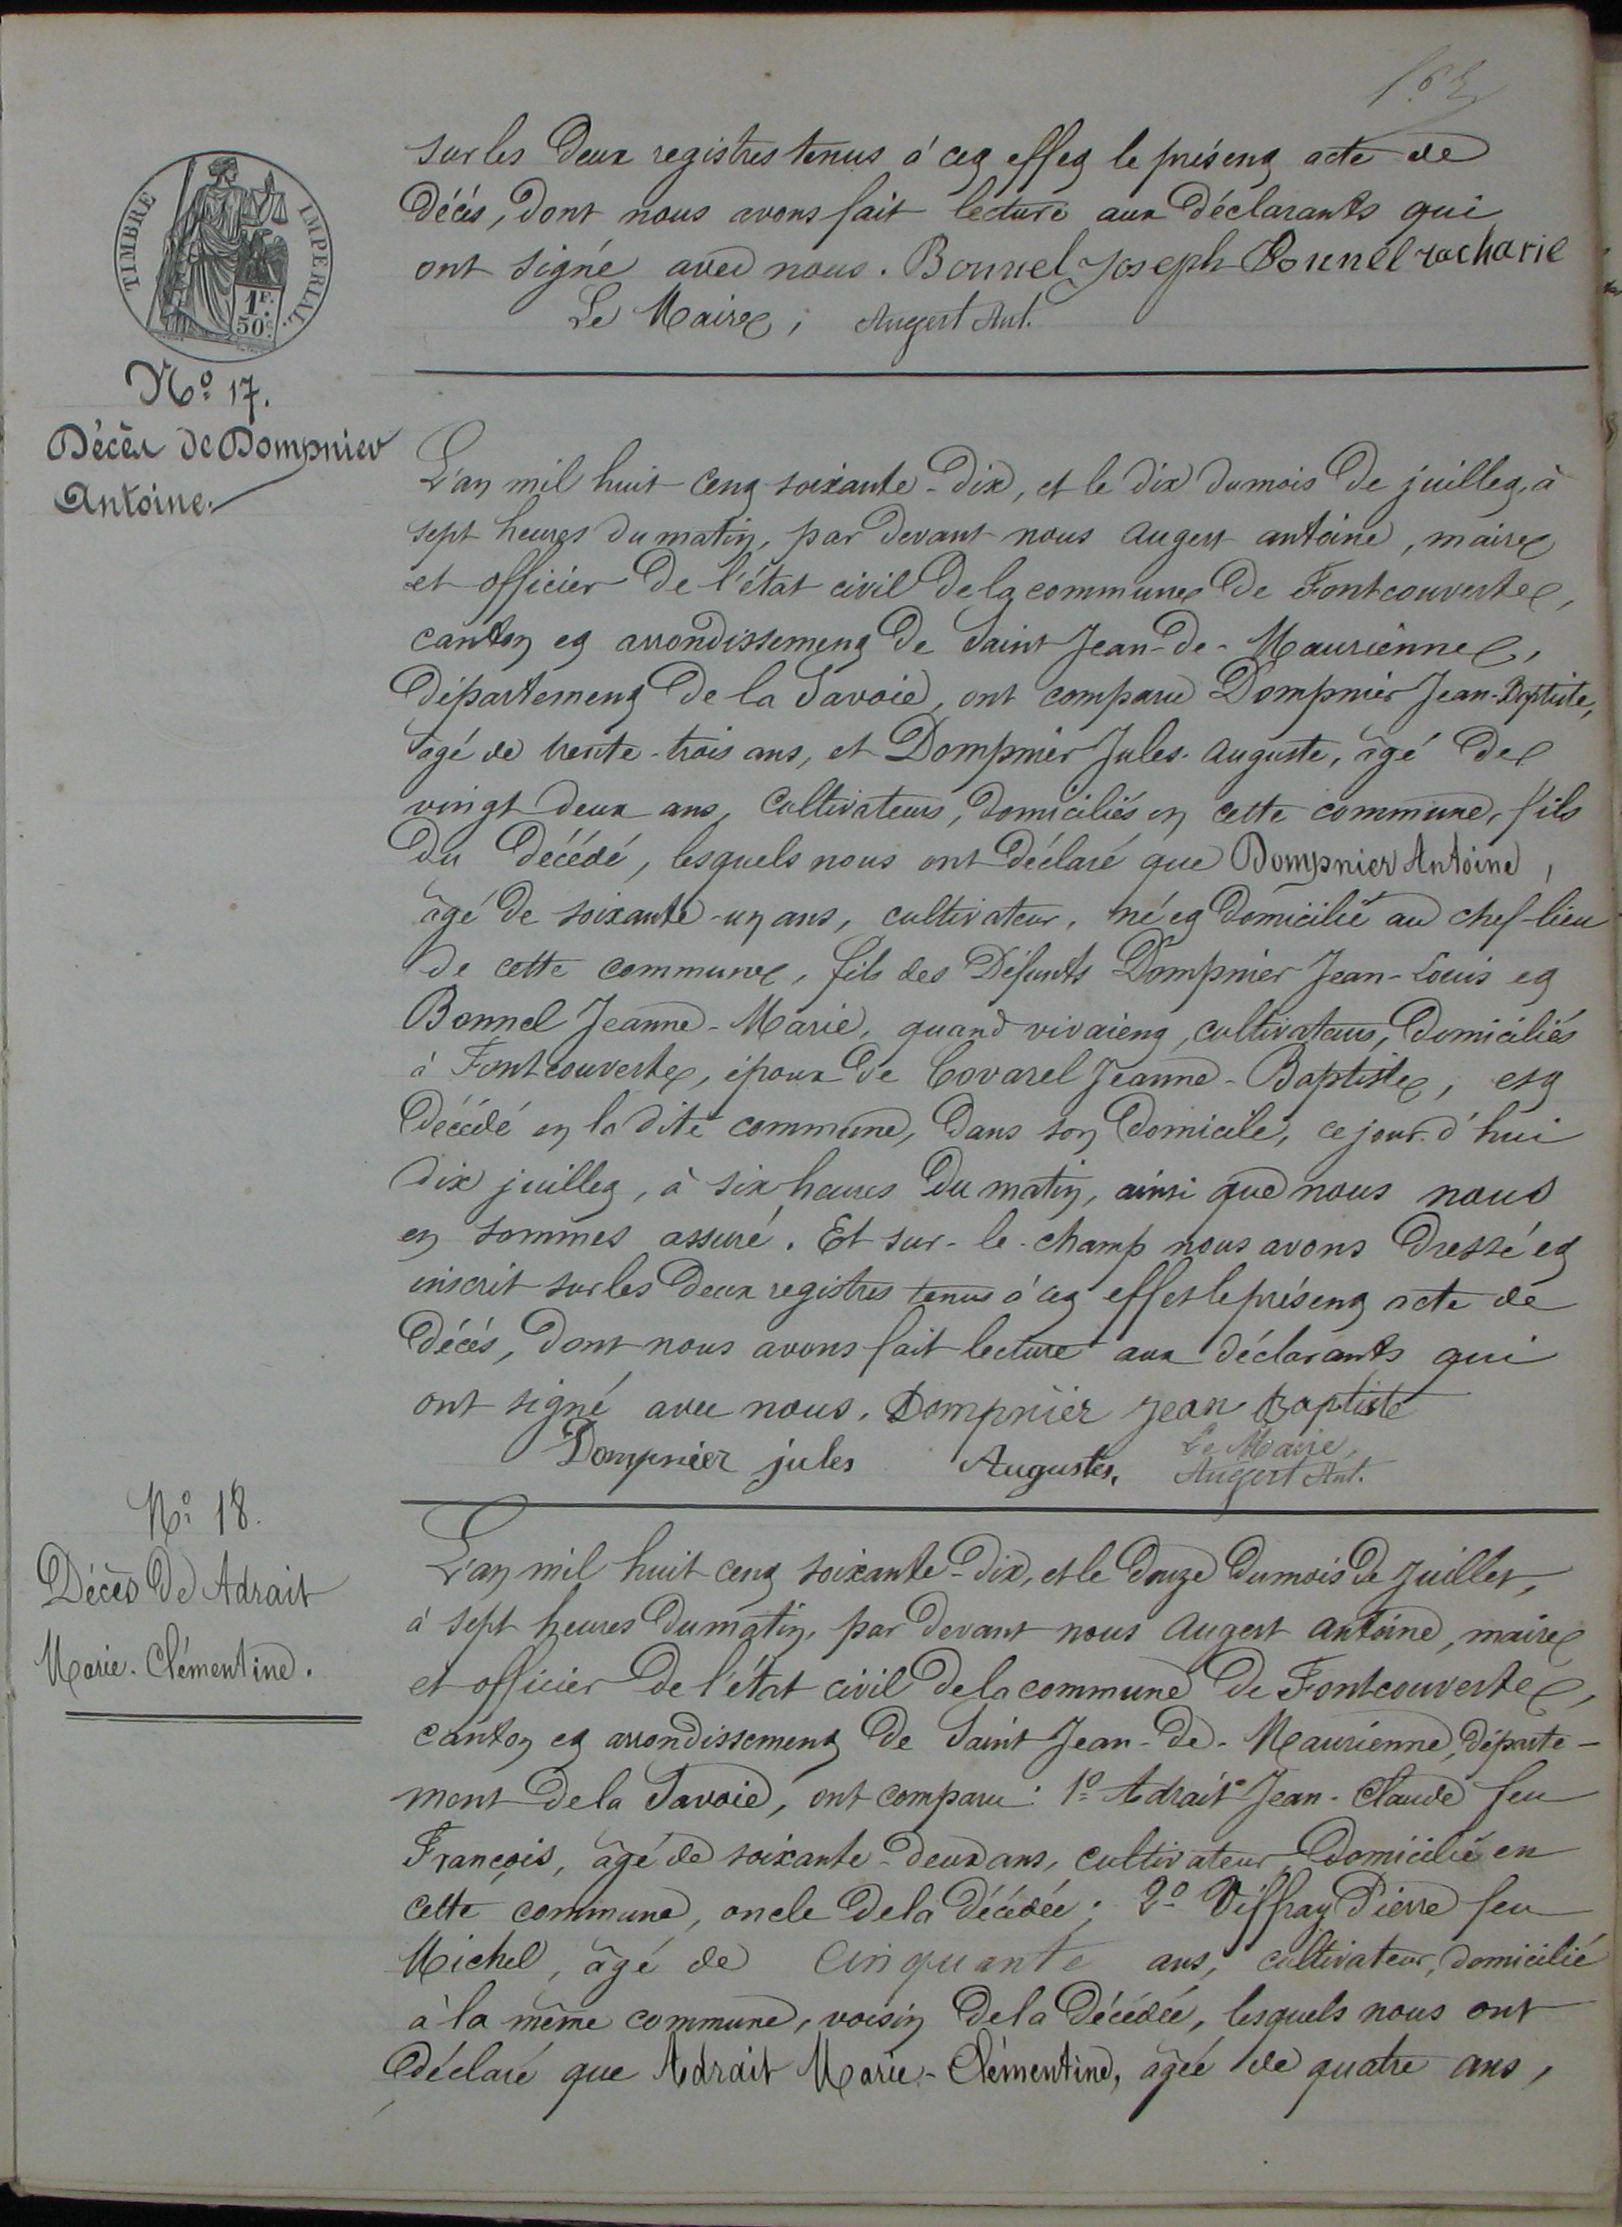 sur les deux registres tenus à cet effet le présent acte de
décès, dont nous avons fait lecture aux déclarants qui
ont signé avec nous. Bonnel Joseph Bonnel zacharie
Le Maire, Augert Ant.
TIMBRE IMPERIAL
1F.
50c
No. 17.
Décès de Dompnier
Antoine.
L'an mil huit cent soixante-dix, et le dix du mois de juillet, à
sept heures du matin, par devant nous Augert antoine, maire
et officier de l'état civil de la commune de Fontcouverte,
canton et arrondissement de Saint Jean-de-Maurienne,
département de la Savoie, ont comparu Dompnier Jean-Baptiste,
âgé de trente-trois ans, et Dompnier Jules-auguste, âgé de
vingt deux ans, Cultivateurs, domiciliés en cette commune, fils
du décédé, lesquels nous ont déclaré que Dompnier Antoine,
âgé de soixante-un ans, cultivateur, né et domicilié au chef-lieu
de cette commune, fils des défunts Dompnier Jean-Louis et
Bonnel Jeanne-Marie, quand vivaient, cultivateurs, domiciliés
à Fontcouverte, époux de Covarel Jeanne-Baptiste, est
décédé en la dite commune, dans son domicile, ce jour-d'hui
dix juillet, à six heures du matin, ainsi que nous nous
en sommes assuré. Et sur-le-champ nous avons dressé et
inscrit sur les deux registres tenus à cet effet le présent acte de
décès, dont nous avons fait lecture aux déclarants qui
ont signé avec nous. Dompnier jean Baptiste
Dompnier jules Auguste. Le Maire,
Augert Ant.
No. 18.
Décès de Adrait
Marie-Clémentine.
L'an mil huit cent soixante-dix, et le douze du mois de juillet,
à sept heures du matin, par devant nous Augert antoine, maire
et officier de l'état civil de la commune de Fontcouverte,
canton et arrondissement de Saint Jean-de-Maurienne, départe-
ment de la Savoie, ont comparu: 1o Adrait Jean-Claude feu
François, âgé de soixante-deux ans, cultivateur domicilié en
cette commune, oncle de la décédée; 2o Viffray Pierre feu
Michel, âgé de cinquante ans, cultivateur, domicilié
à la même commune, voisin de la décédée, lesquels nous ont
déclaré que Adrait Marie-Clémentine, âgée de quatre ans,